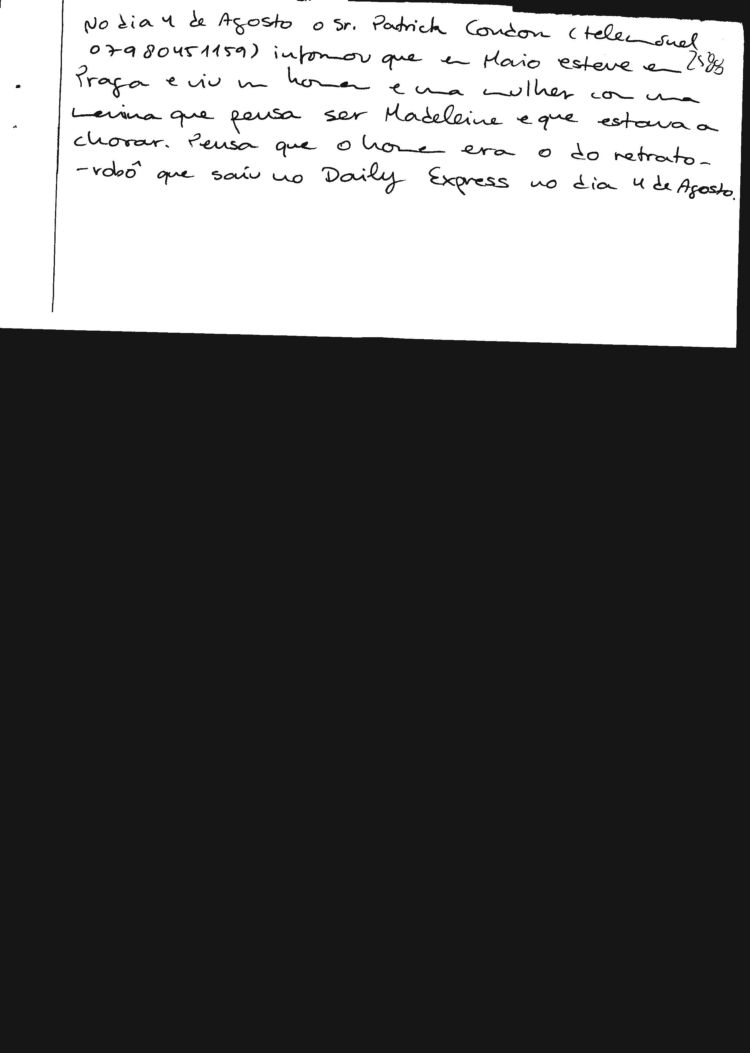 No dia 4 de Agosto o Sr. Patrick Condon (telemóvel
07980451159) informou que em Maio esteve em
Praga e viu um homem e uma mulher com uma
menina que pensa ser Madeleine e que estava a
chorar. Pensa que o homem era o do retrato-
-robô que saiu no Daily Express no dia 4 de Agosto.